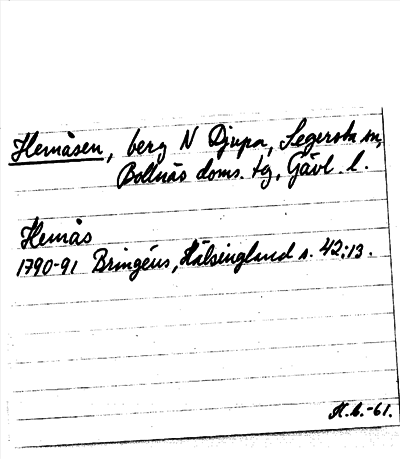 Hemåsen, berg N Djupa, Segersta sn,
Bollnäs doms. tg, Gävl. l.
Hemås
1790-91 Bringéus, Hälsingland s. 42:13.
K.b.-61.